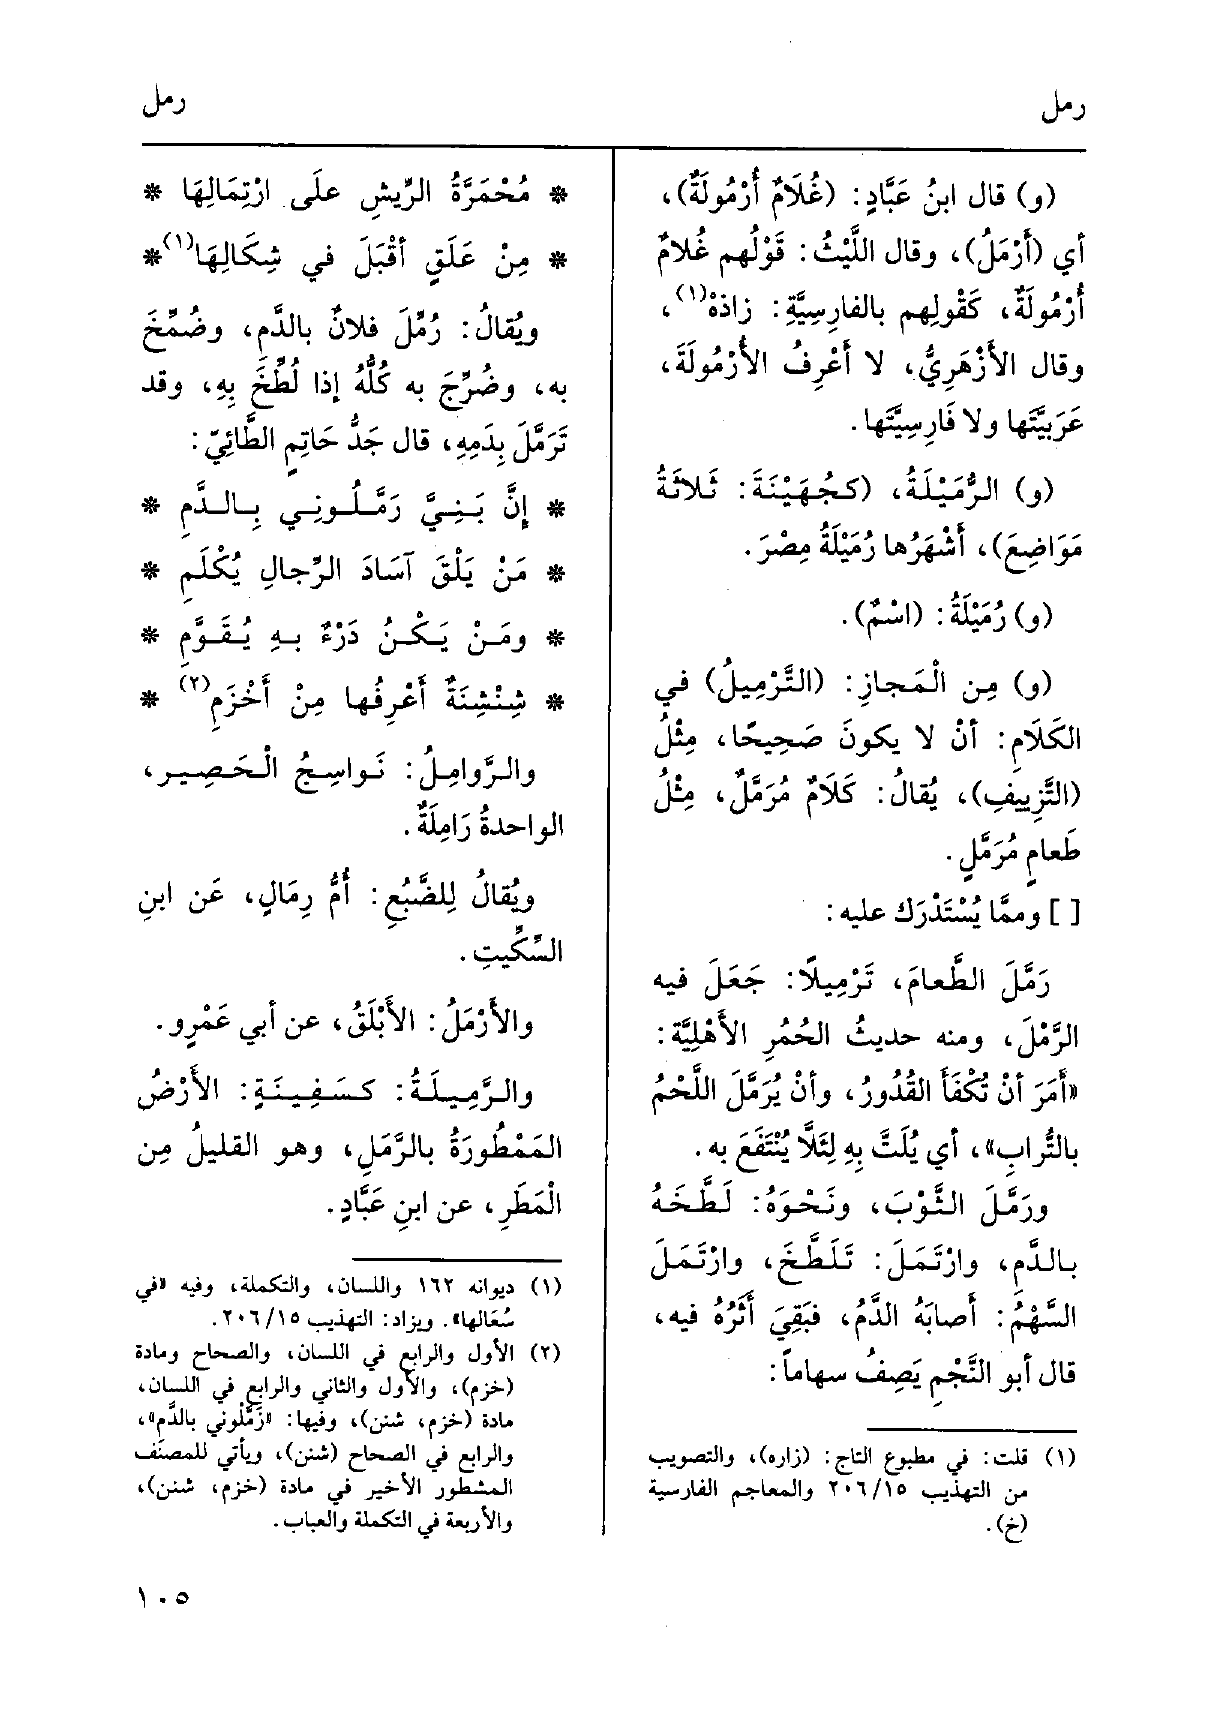 رمل
رمل
(و) قال ابنُ عَبَّادٍ: (غُلَامٌ أُرْمُولَةٌ)،
أي (أَرْمَلُ)، وقال اللَّيْثُ: قَوْلُهم غُلامٌ
أُرْمُولَةٌ، كَقْولِهم بالفارِسِيَّةِ: زاذهْ(١)،
وقال الأَزْهَرِيُّ، لا أَعْرِفُ الأُرْمُولَةَ،
عَرَبِيَّتَها ولا فَارِسِيَّتَها.
(و) الرُّمَيْلَةُ، (كجُهَيْنَةَ: ثَلاثَةُ
مَوَاضِعَ)، أَشْهَرُها رُمَيْلَةُ مِصْرَ.
(و) رُمَيْلَةُ: (اسْمٌ).
(و) مِن الْمَجازِ: (التَّرْمِيلُ) في
الكَلَامِ: أنْ لا يكونَ صَحِيحًا، مِثْلُ
(التَّزِييفِ)، يُقالُ: كَلَامٌ مُرَمَّلٌ، مِثْلُ
طَعامٍ مُرَمَّلٍ.
[ ] وممَّا يُسْتَدْرَك عليه:
رَمَّلَ الطَّعامَ، تَرْمِيلًا: جَعَلَ فيه
الرَّمْلَ، ومنه حديثُ الحُمُرِ الأَهْلِيَّة:
«أَمَرَ أنْ تُكْفَأَ القُدُورُ، وأنْ يُرَمَّلَ اللَّحْمُ
بالتُّرابِ»، أي يُلَتَّ بِهِ لِئَلَّا يُنْتَفَعَ به.
ورَمَّلَ الثَّوْبَ، ونَحْوَهُ: لَطَّخَهُ
بالدَّم، وارْتَمَلَ: تَلَطَّخَ، وارْتَمَلَ
السَّهْمُ: أصابَهُ الدَّمُ، فبَقِيَ أَثَرُهُ فيه،
قال أبو النَّجْمِ يَصِفُ سهاماً:
(١) قلت: في مطبوع التاج: (زاره)، والتصويب
من التهذيب ٢٠٦/١٥ والمعاجم الفارسية
(خ).
* مُحْمَرَّةُ الرِّيشِ علَى ارْتِمَالِهَا *
* مِنْ عَلَقٍ أقْبَلَ في شِكَالِهَا(١)*
ويُقالُ: رُمِّلَ فلانٌ بالدَّمِ، وضُمِّخَ
به، وضُرِّجَ به كُلُّهُ إذا لُطِّخَ بِهِ، وقد
تَرَمَّلَ بِدَمِهِ، قال جَدُّ حَاتِمٍ الطَّائِيّ:
* إنَّ بَنِيَّ رَمَّلُونِي بِالدَّمِ *
* مَنْ يَلْقَ آسَادَ الرِّجالِ يُكْلَمِ *
* ومَنْ يَكُنْ دَرْءٌ بهِ يُقَوَّمِ *
* شِنْشِنَةٌ أَعْرِفُها مِنْ أَخْزَمِ(٢) *
والرَّوامِلُ: نَواسِجُ الْحَصِيرِ،
الواحدةُ رَامِلَةٌ.
ويُقالُ لِلضَّبُعِ: أُمُّ رِمَالٍ، عَن ابنِ
السِّكِّيتِ.
والأَرْمَلُ: الأَبْلَقُ، عن أبي عَمْرٍو.
والرَّمِيلَةُ: كسَفِينَةٍ: الأَرْضُ
المَمْطُورَةُ بالرَّمَلِ، وهو القليلُ مِن
الْمَطَرِ، عن ابنِ عَبَّادٍ.
(١) ديوانه ١٦٢ واللسان، والتكملة، وفيه «في
سُعَالها». ويزاد: التهذيب ٢٠٦/١٥.
(٢) الأول والرابع في اللسان، والصحاح ومادة
(خزم)، والأول والثاني والرابع في اللسان،
مادة (خزم، شنن)، وفيها: «زَمَّلُوني بالدَّم»،
والرابع في الصحاح (شنن)، ويأتي للمصنف
المشطور الأخير في مادة (خزم، شنن)،
والأربعة في التكملة والعباب.
١٠٥